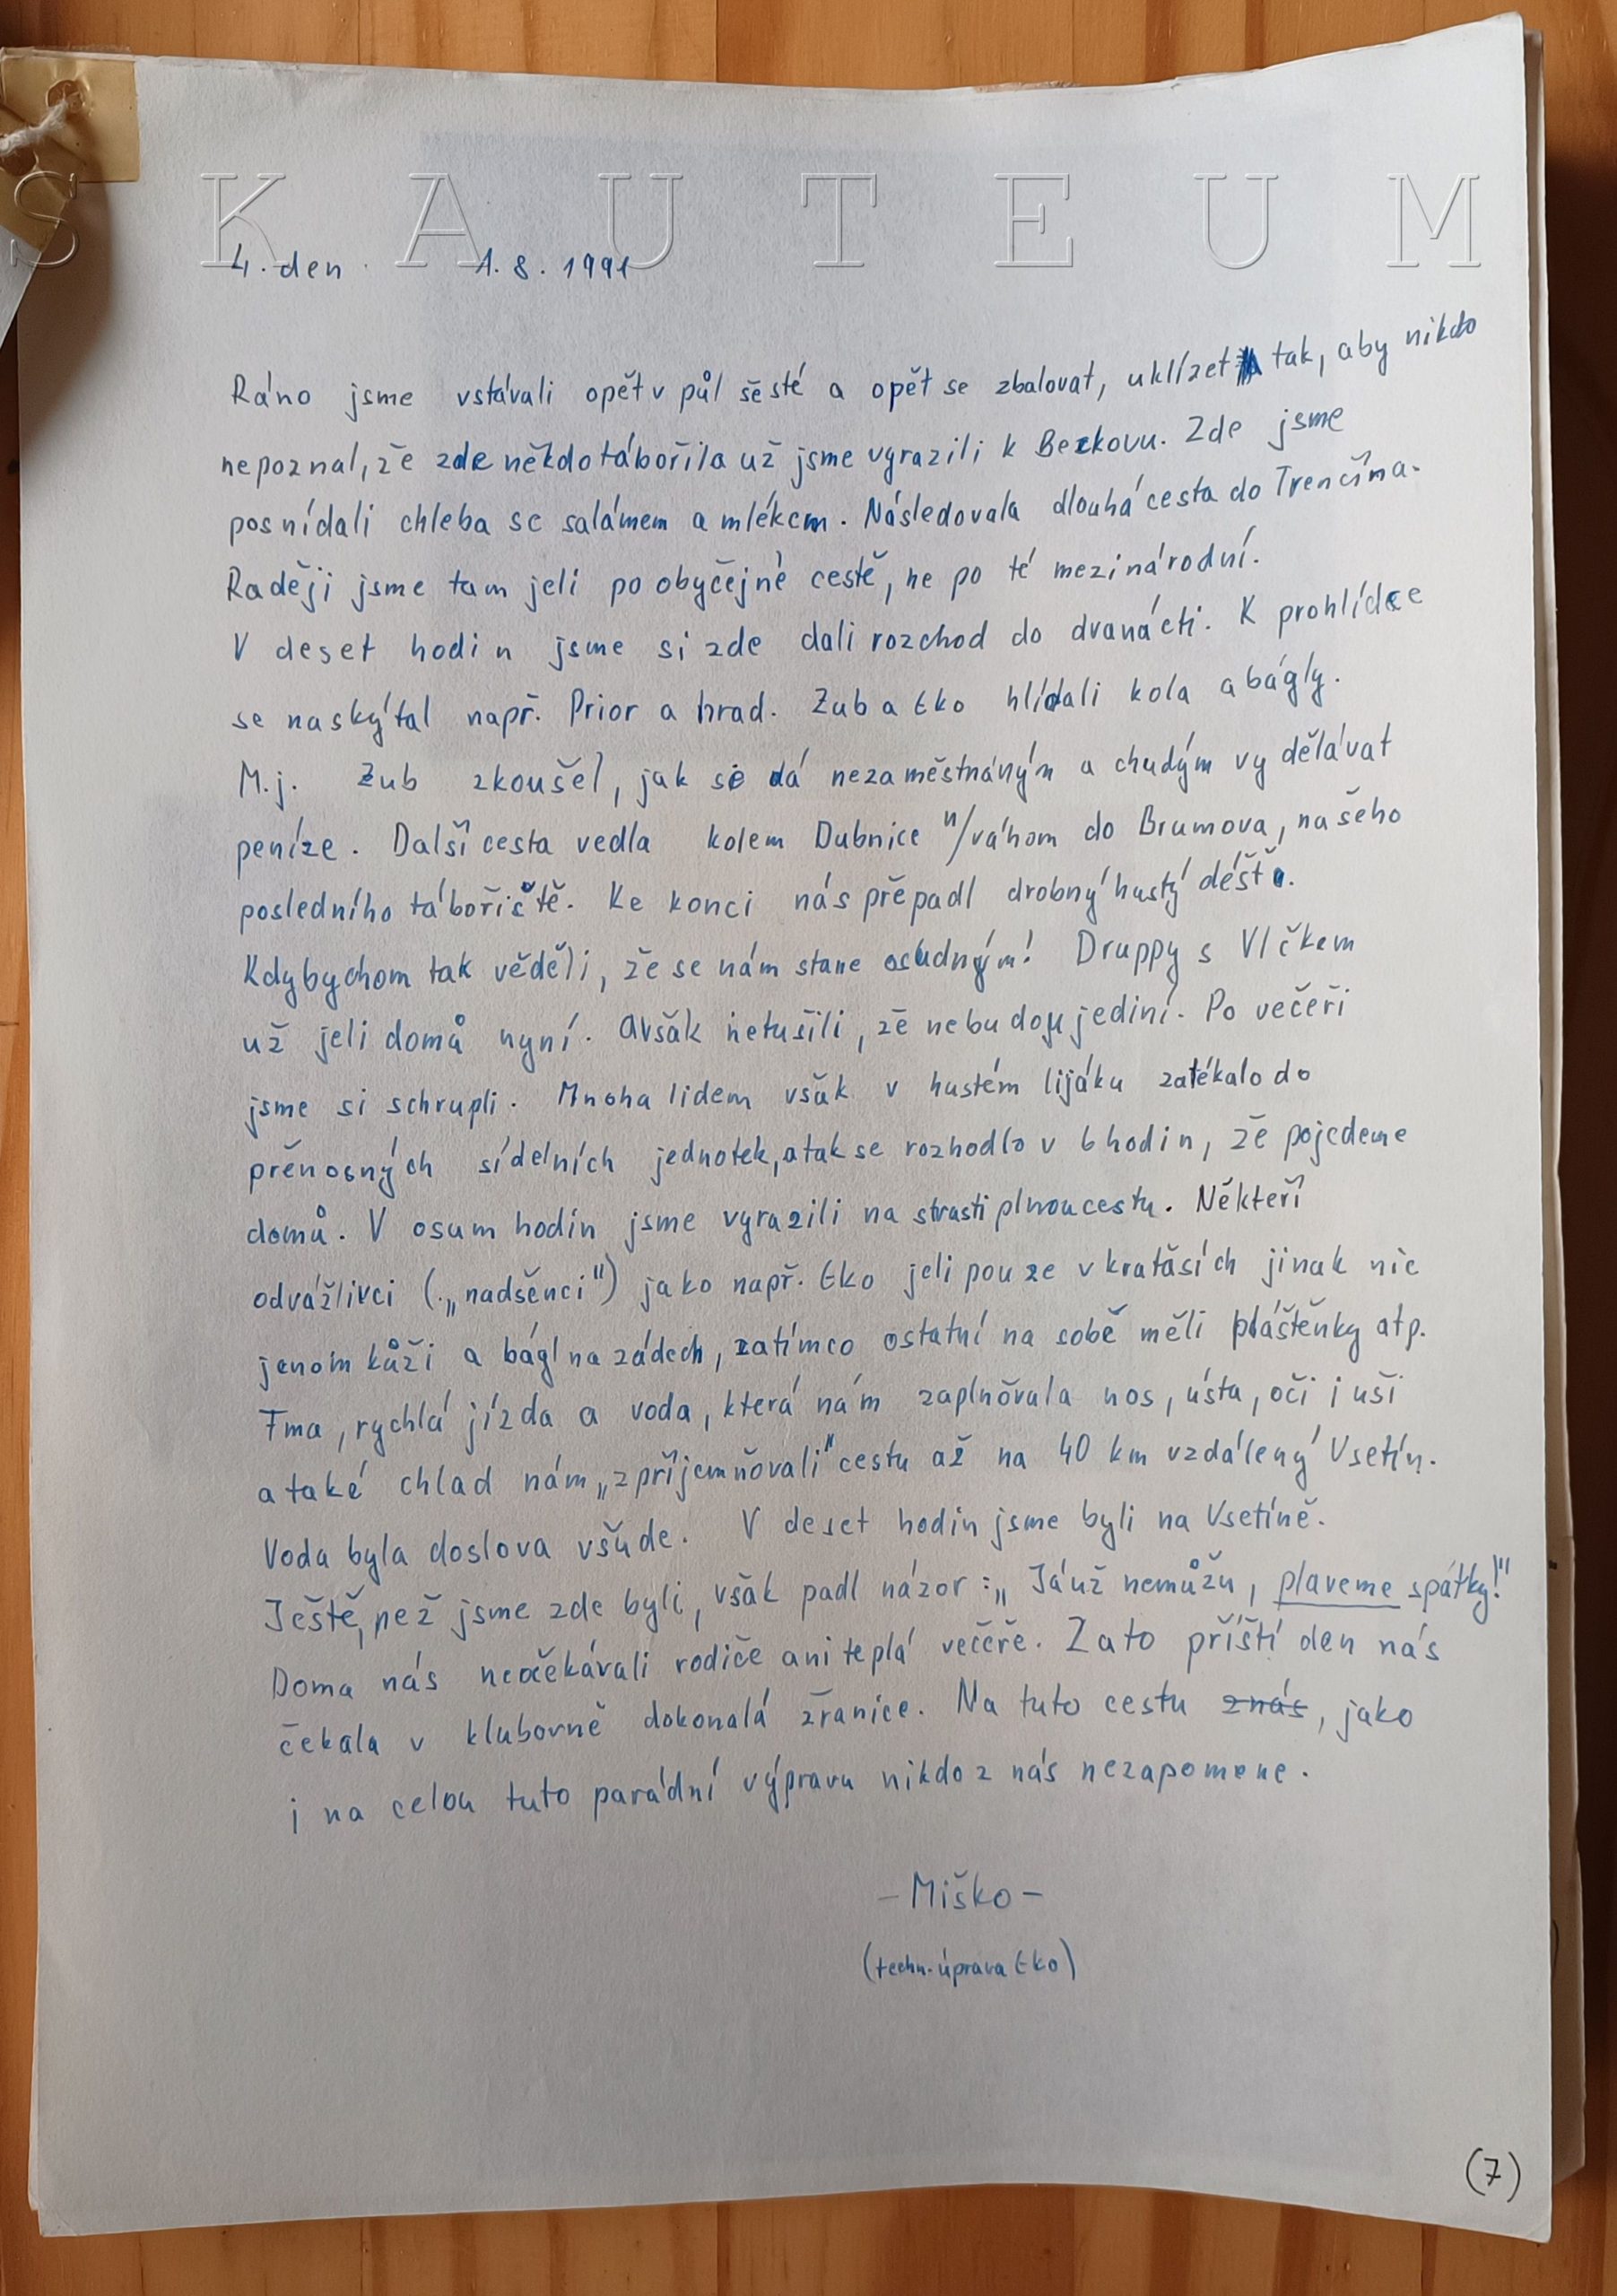 S K A U T E U M
4. den 1. 8. 1991
Ráno jsme vstávali opět v půl šesté a opět se zbalovat, uklízet tak, aby nikdo
nepoznal, že zde někdo tábořila už jsme vyrazili k Beckovu. Zde jsme
posnídali chleba se salámem a mlékem. Následovala dlouhá cesta do Trenčína.
Raději jsme tam jeli po obyčejné cestě, ne po té mezinárodní.
V deset hodin jsme si zde dali rozchod do dvanácti. K prohlídce
se naskýtal např. Prior a hrad. Zub a Eko hlídali kola a bágly.
M.j. Zub zkoušel, jak se dá nezaměstnáným a chudým vydělávat
peníze. Další cesta vedla kolem Dubnice n/váhom do Brumova, našeho
posledního tábořiště. Ke konci nás přepadl drobný hustý déšť.
Kdybychom tak věděli, že se nám stane osudným! Druppy s Vlčkem
už jeli domů nyní. Avšak netušili, že nebudou jediní. Po večeři
jsme si schrupli. Mnoha lidem však v hustém lijáku zatékalo do
přenosných sídelních jednotek, a tak se rozhodlo v 6 hodin, že pojedeme
domů. V osum hodin jsme vyrazili na strastiplnou cestu. Někteří
odvážlivci („nadšenci") jako např. Eko jeli pouze v kraťasích jinak nic
jenom kůži a bágl na zádech, zatímco ostatní na sobě měli pláštěnky atp.
Tma, rychlá jízda a voda, která nám zaplňovala nos, ústa, oči i uši
a také chlad nám „zpříjemňovali" cestu až na 40 km vzdálený Vsetín.
Voda byla doslova všude. V deset hodin jsme byli na Vsetíně.
Ještě, než jsme zde byli, však padl názor: „Já už nemůžu, plaveme spátky!"
Doma nás neočekávali rodiče ani teplá večeře. Zato příští den nás
čekala v klubovně dokonalá žranice. Na tuto cestu znás, jako
i na celou tuto parádní výpravu nikdo z nás nezapomene.
- Miško -
(techn. úprava Eko)
(7)